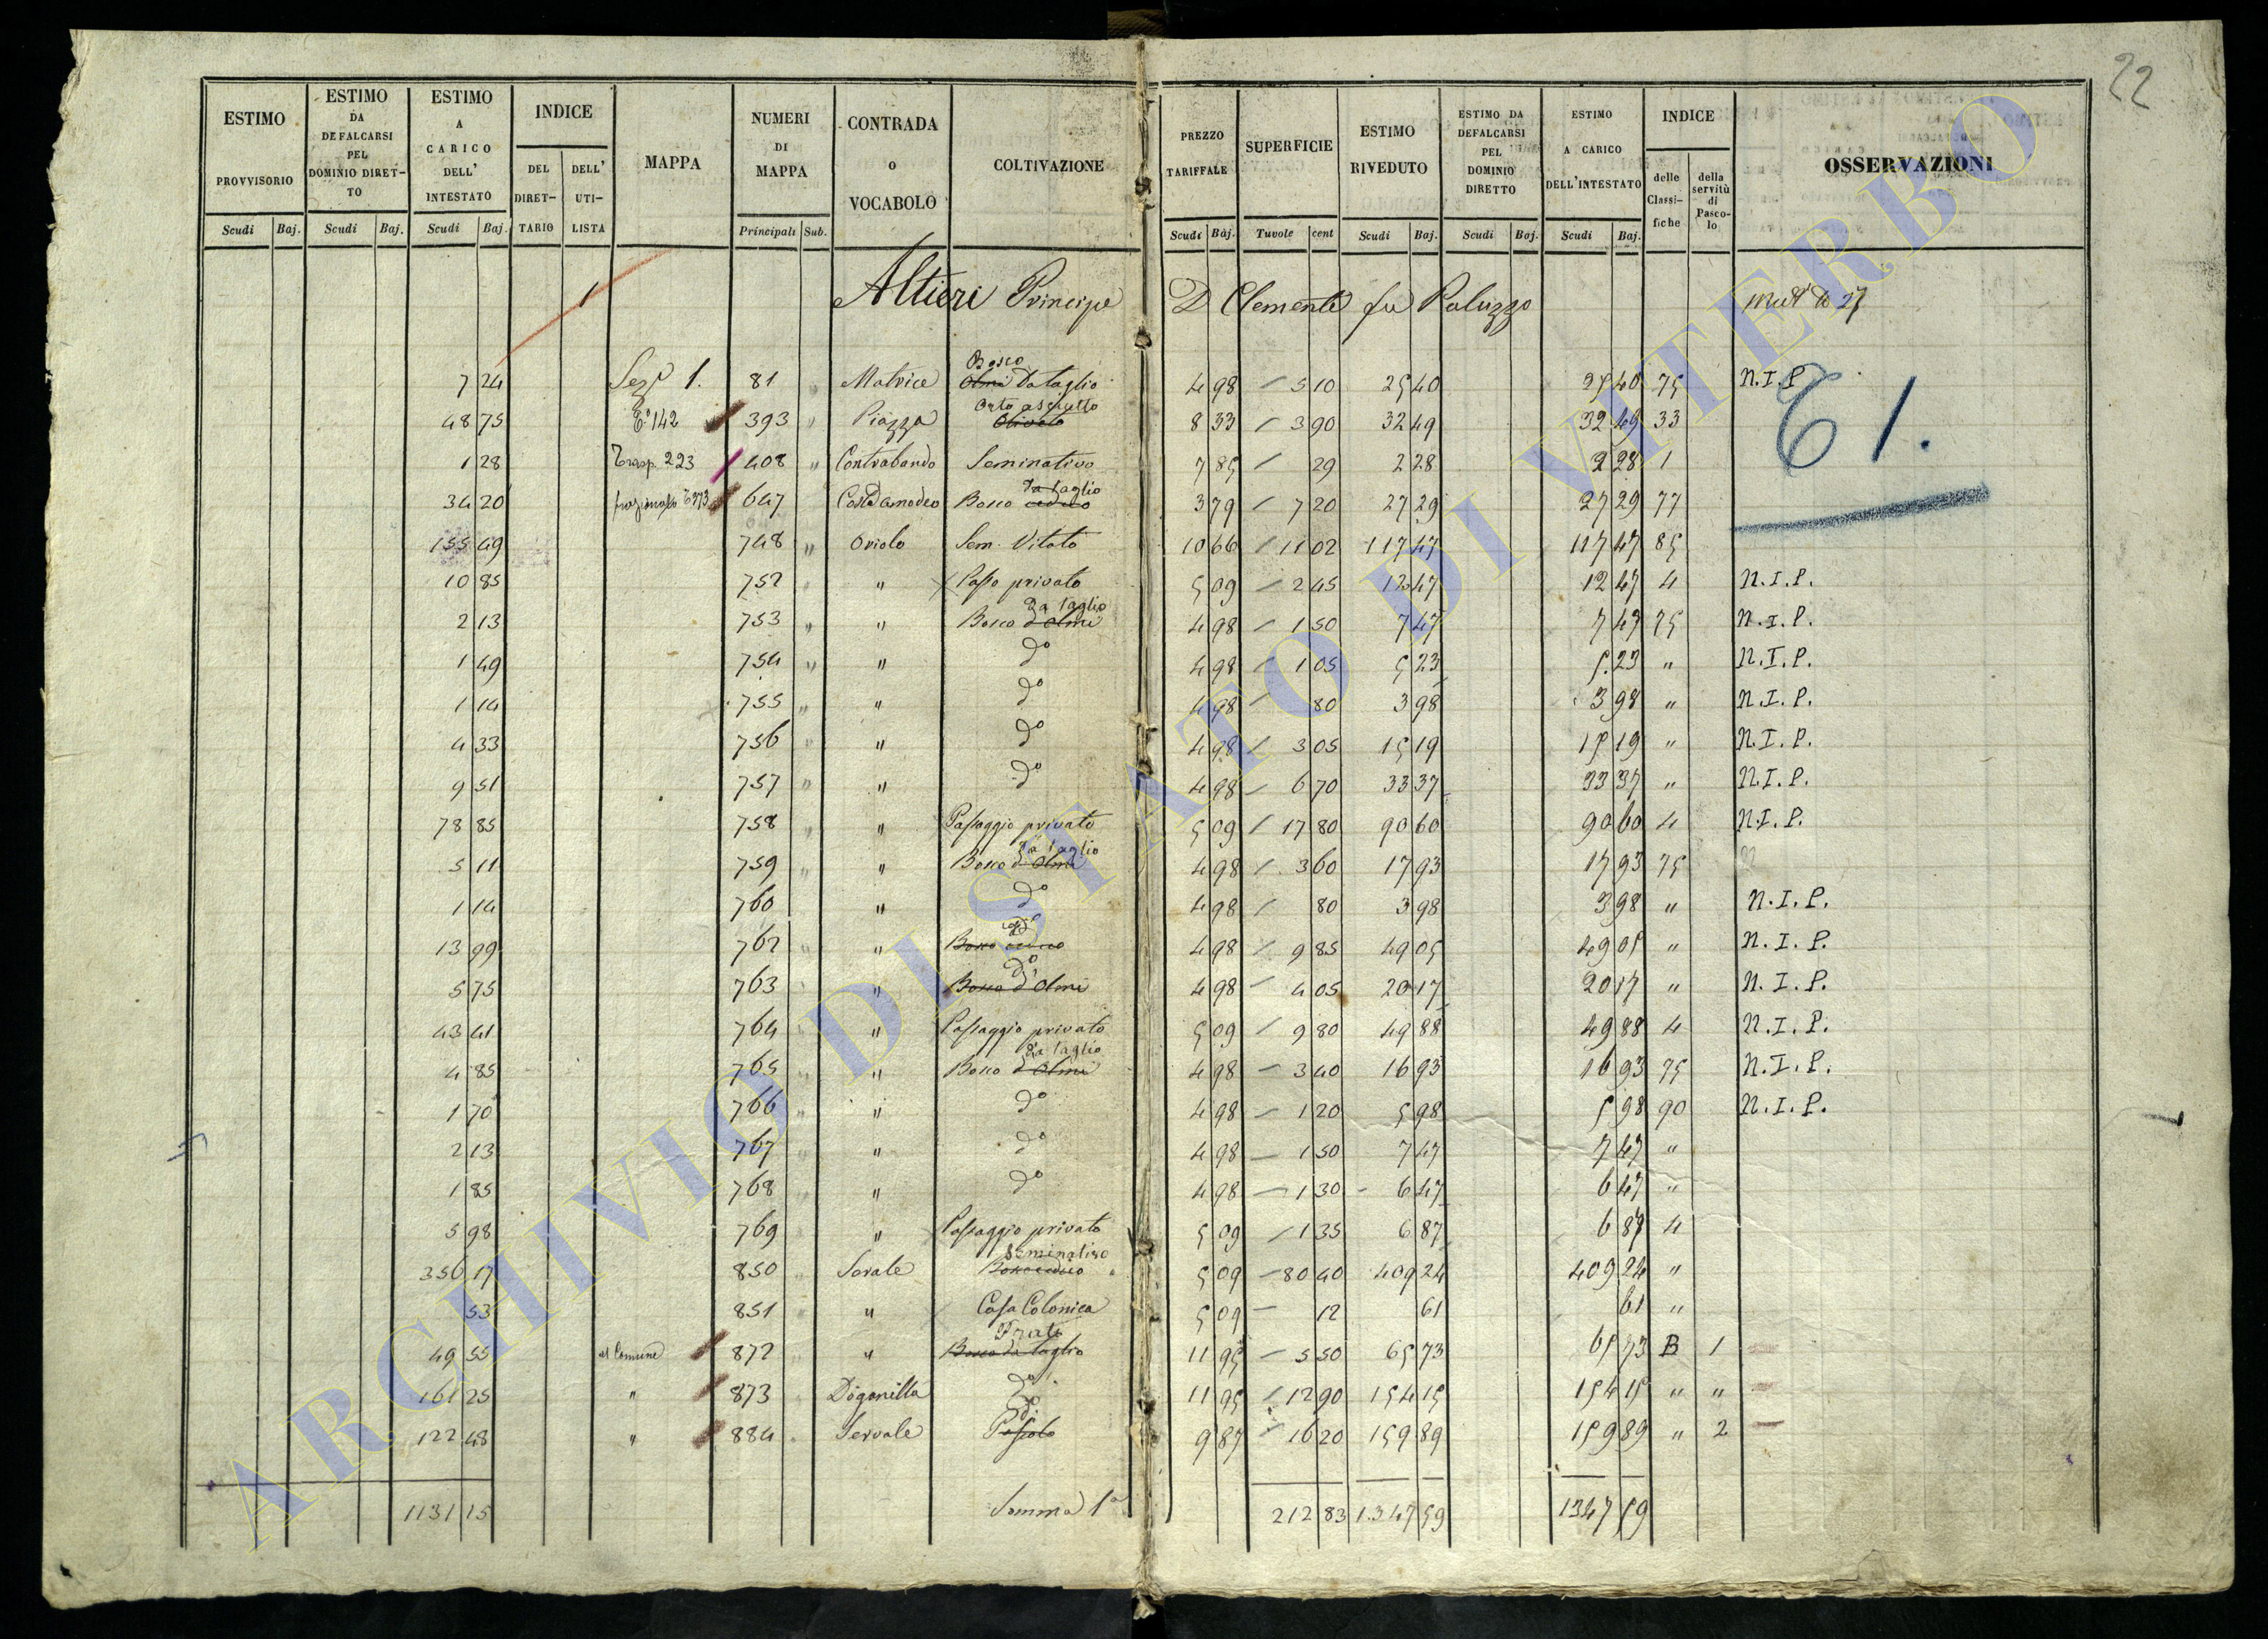 22
ESTIMO PROVVISORIO
ESTIMO DA DEFALCARSI PEL DOMINIO DIRETTO
ESTIMO A CARICO DELL' INTESTATO
INDICE
DEL DIRETTARIO
DELL' UTILISTA
MAPPA
NUMERI DI MAPPA
CONTRADA o VOCABOLO
COLTIVAZIONE
PREZZO TARIFFALE
SUPERFICIE
ESTIMO RIVEDUTO
ESTIMO DA DEFALCARSI PEL DOMINIO DIRETTO
ESTIMO A CARICO DELL'INTESTATO
INDICE
delle Classifiche
della servitù di Pascolo
OSSERVAZIONI
Scudi Baj. Scudi Baj. Scudi Baj. Principali Sub. Scudi Baj. Tavole cent Scudi Baj. Scudi Baj. Scudi Baj.
1 Altieri Principe D Clemente fu Paluzzo
7 24 Sez.e 1. 81 " Matrice Bosco Olmi Da taglio 4 98 5 10 25 40 25 40 75 N.I.P.
48 75 E. 142 393 " Piazza Orto asciutto Olivato 8 33 3 90 32 49 32 49 33
1 28 Trasp. 223 408 " Contrabando Seminativo 7 85 29 2 28 2 28 1
34 20 647 Bosco Da taglio ceduo 3 79 7 20 27 29 27 29 77
155 49 748 " Oriolo Sem. Vitato 10 66 11 02 117 47 117 47 85
10 85 752 " Passo privato 5 09 2 45 12 47 12 47 4 N.I.P.
2 13 753 " " Bosco Da taglio d'Olmi 4 98 1 50 7 47 7 47 75 N.I.P.
1 49 754 " " do 4 98 1 05 5 23 5 23 " N.I.P.
1 14 755 " " do 4 98 80 3 98 3 98 " N.I.P.
4 33 756 " " do 4 98 3 05 15 19 15 19 " N.I.P.
9 51 757 " " do 4 98 6 70 33 37 33 37 " N.I.P.
78 85 758 " " Passaggio privato 5 09 17 80 90 60 90 60 4 N.I.P.
5 11 759 " " Bosco Da taglio d'Olmi 4 98 3 60 17 93 17 93 75
1 14 760 " do 4 98 80 3 98 3 98 " N.I.P.
13 99 762 " " do Bosco ceduo 4 98 9 85 49 05 49 05 " N.I.P.
5 75 763 " do Bosco d'Olmi 4 98 4 05 20 17 20 17 " N.I.P.
43 41 764 " Passaggio privato 5 09 9 80 49 88 49 88 4 N.I.P.
4 85 765 " " Bosco Da taglio d'Olmi 4 98 3 40 16 93 16 93 75 N.I.P.
1 70 766 " " do 4 98 1 20 5 98 5 98 90 N.I.P.
2 13 767 " " do 4 98 1 50 7 47 7 47 "
1 85 768 " " do 4 98 1 30 6 47 6 47 "
5 98 769 " Passaggio privato 5 09 1 35 6 87 6 87 4
356 17 850 " Seminativo Bosco ceduo 5 09 80 40 409 24 409 24 "
53 851 " Casa Colonica 5 09 12 61 61 "
49 55 al Comune 872 " Prato Bosco da taglio 11 95 5 50 65 73 65 73 B 1
161 25 " 873 Diganilla do 11 95 12 90 154 15 154 15 " "
122 48 " 884 Servale do Pascolo 9 87 16 20 159 89 159 89 " 2
1131 15 Somma 1a 212 83 1347 59 1347 59
E 1.
ARCHIVIO DI STATO DI VITERBO